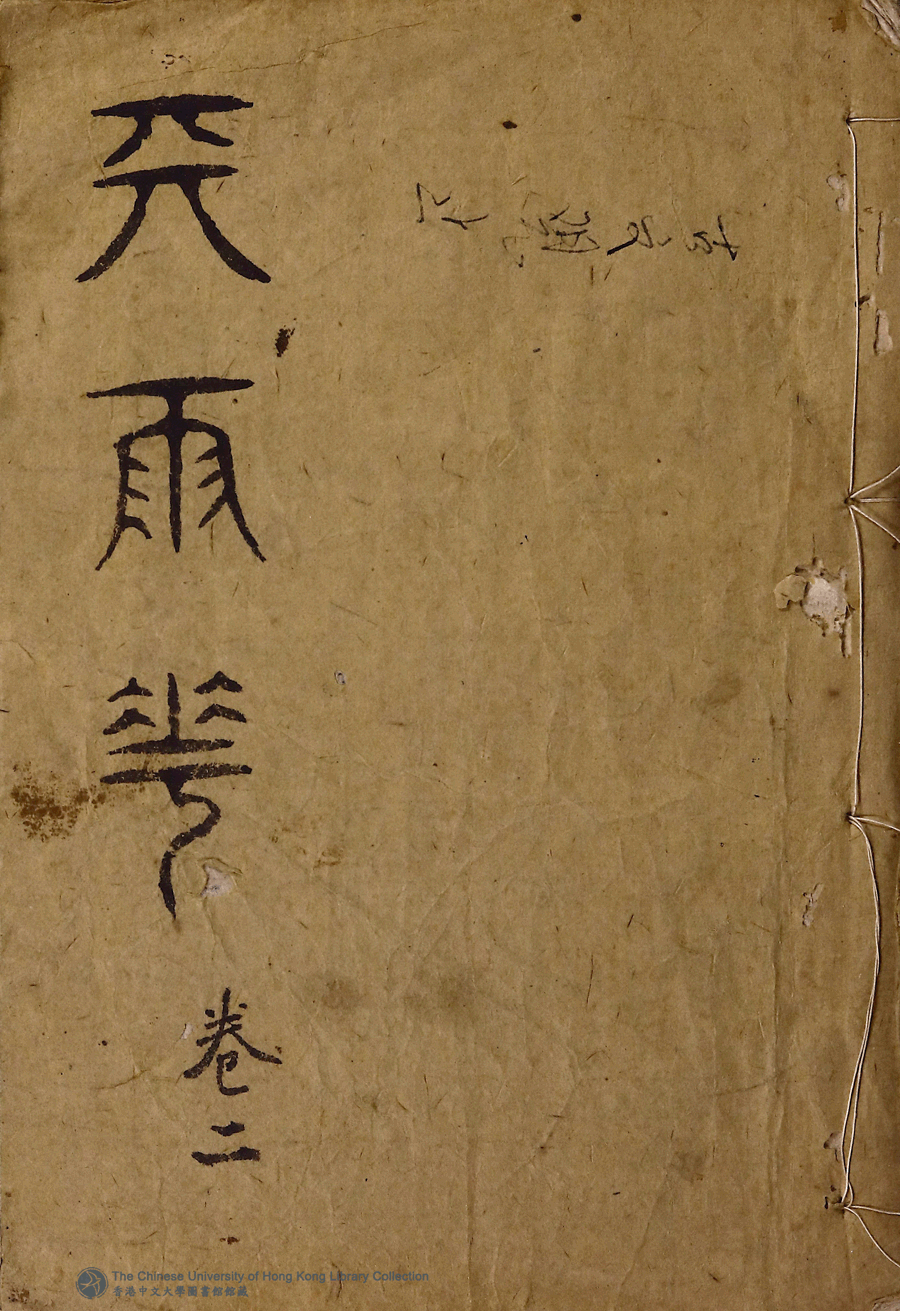 天雨華
卷二
The Chinese University of Hong Kong Library Collection
香港中文大學圖書館館藏